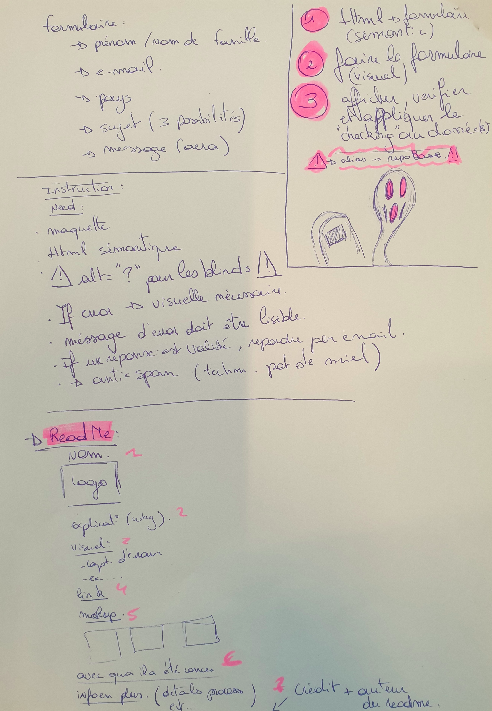 formulaire.
→ prénom / nom de famille
→ e-mail.
→ pays
→ sujet (3 possibilités)
→ message (area)
1 Html → formulaire
(sémantic)
2 faire le formulaire
(visual)
3 afficher, vérifier
et appliquer le
"checking" au dossier(s)
Instruction:
Need:
. maquette
. Html sémantique
. ⚠ alt="?" pour les blinds ⚠
. If error → visuelle nécessaire.
. message d'error doit être lisible.
. If un réponse est validé, répondre par email.
. → anti-spam. (pot de miel)
→ ReadMe.
Nom. 1
Logo
explicat° (why). 2
visuel:
-capt. d'écran
-ex...
link 4
mockup. 5
avec quoi il a été conçu 6
info en plus. (détails
etc. 7 Crédit + auteur
du readme.